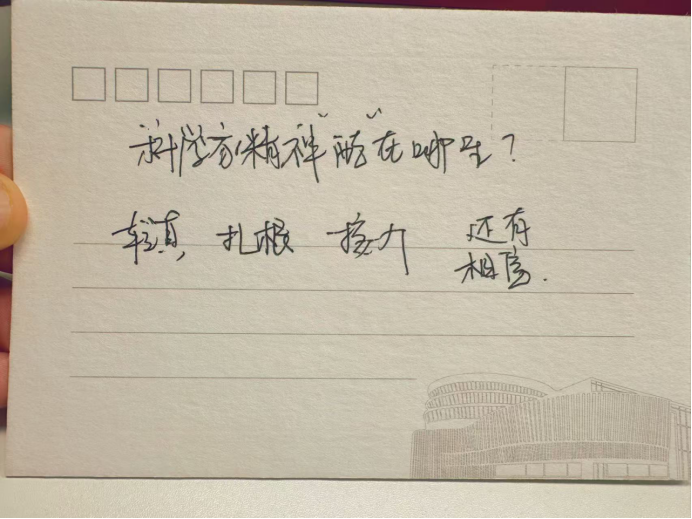 科学家精神“酷”在哪里？
较真, 扎根 接力 还有
相信.